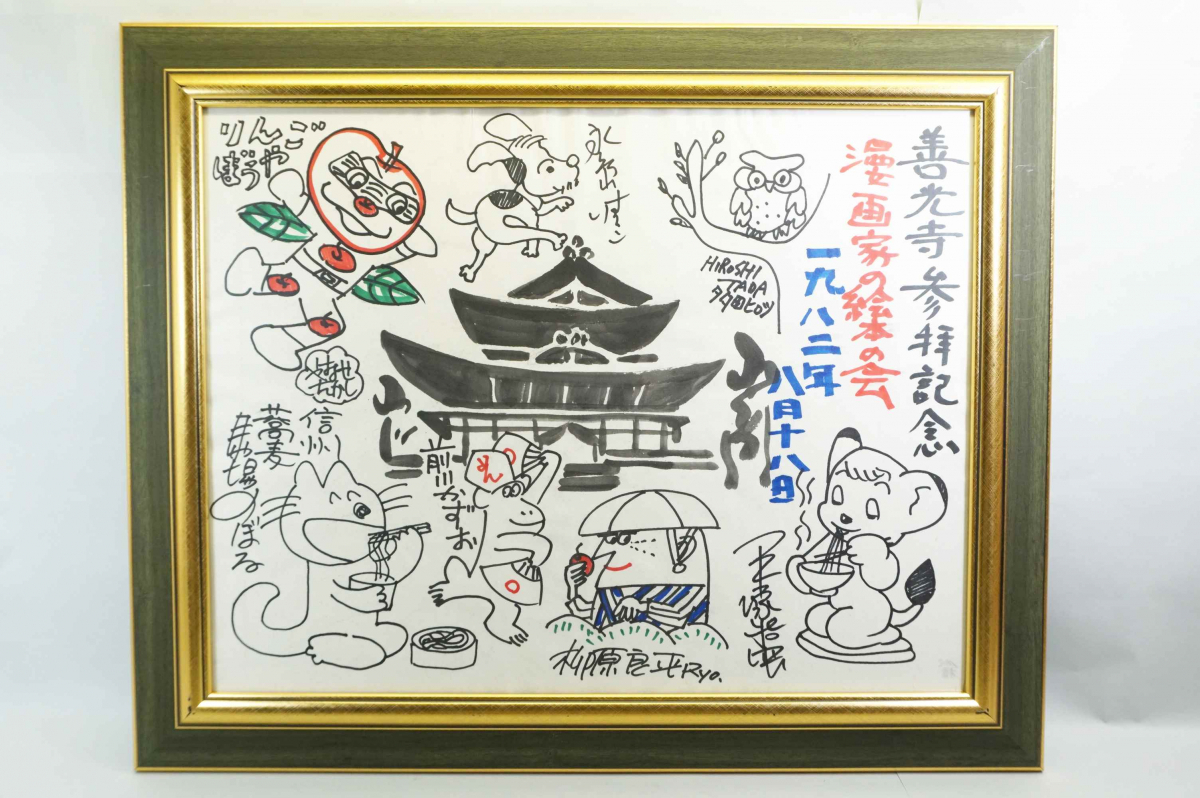 善光寺参拝記念
漫画家の絵本の会
一九八二年
八月十八日
HiROSHi
TADA
タダヒロシ
永島慎二
りんご
ぼうや
信州
蕎麦
馬場のぼる
前川かずお
めん
柳原良平Ryo.
手塚治虫